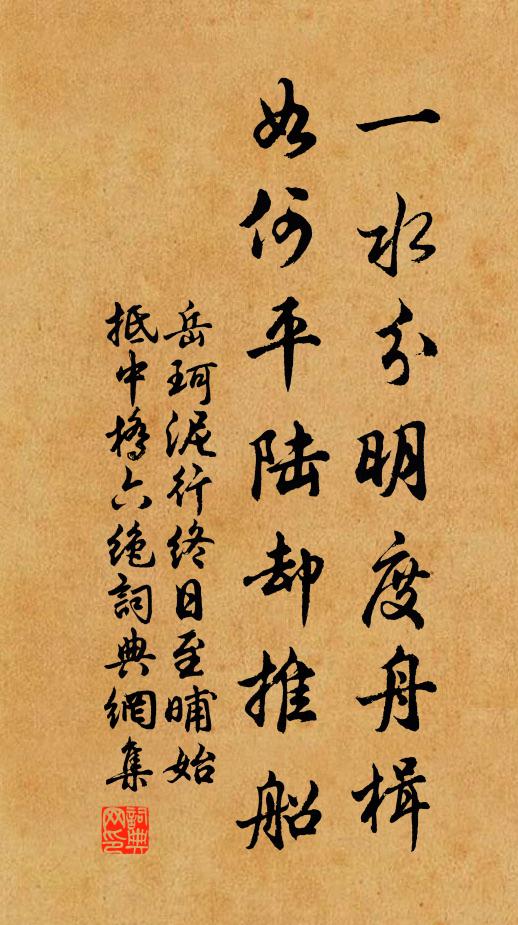 一水分明度舟楫
如何平陆却推船
岳珂泥行终日至晡始
抵中桥六绝詞典網集
詞典网印